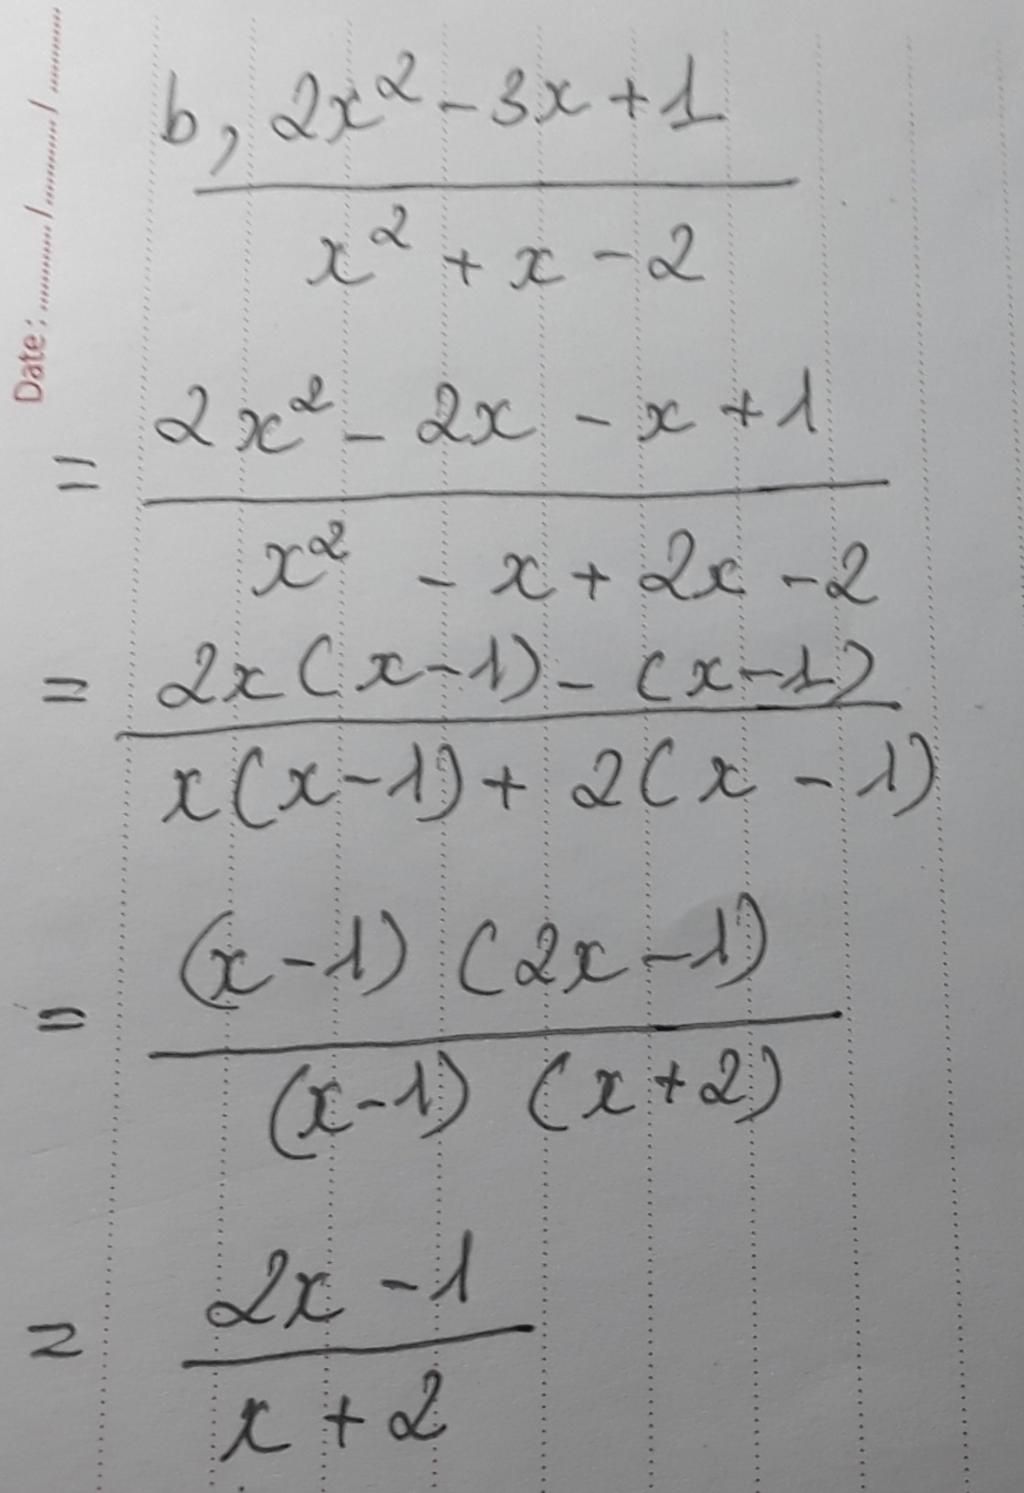 Date:........./........./.........
b, 2x² - 3x + 1
x² + x - 2
= 2x² - 2x - x + 1
x² - x + 2x - 2
= 2x(x-1) - (x-1)
x(x-1) + 2(x - 1)
= (x-1) (2x-1)
(x-1) (x+2)
= 2x - 1
x + 2